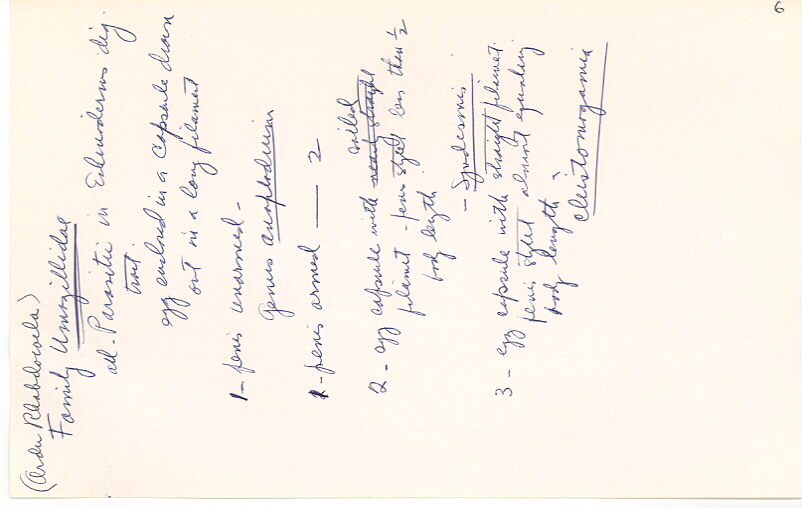 (Order Rhabdocoela)
Family Umagillidae
all - Parasitic in Echinoderms dig.
tract.
egg enclosed in a capsule drawn
out in a long filament
1- penis unarmed -
Genus Anoplodium
1 - penis armed — 2
coiled
2 - egg capsule with nearly straight
filament - penis stylet less than 1/2
body length
- Syndesmis
3 - egg capsule with straight filament.
penis stylet almost equaling
body length
Cleistomorgamia
6